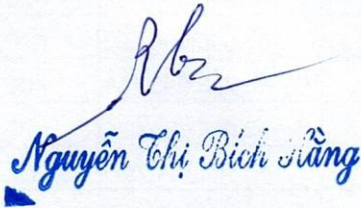 Nguyễn Thị Bích Hằng